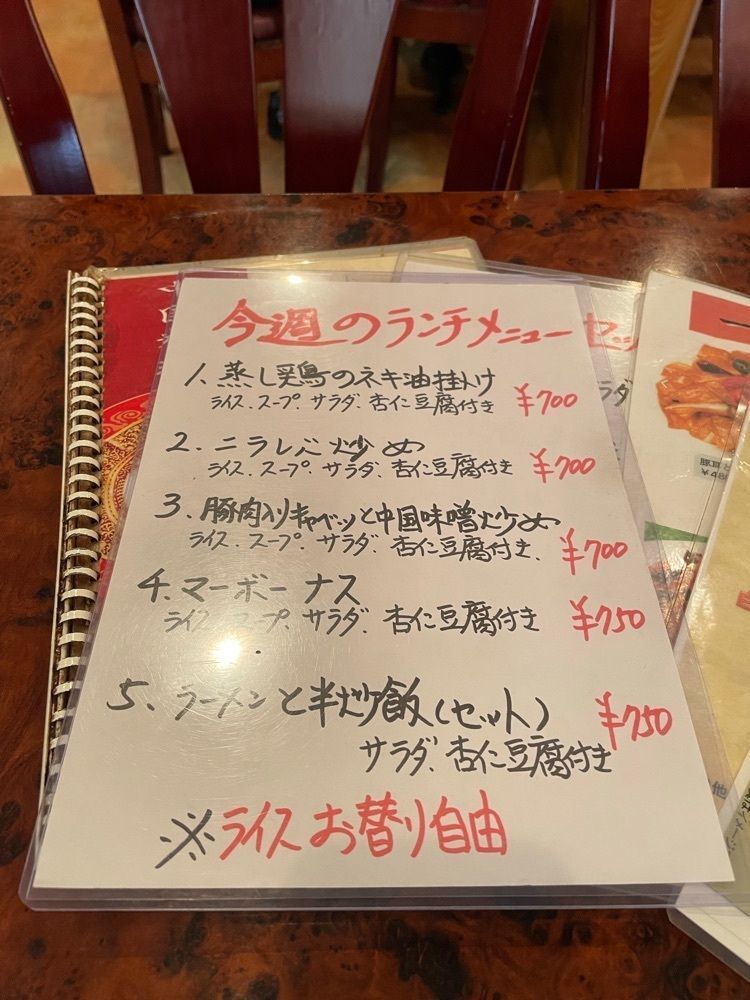 今週のランチメニュー
1、蒸し鶏のネギ油掛け
ライス.スープ.サラダ.杏仁豆腐付き ¥700
2、ニラレバ炒め
ライス.スープ.サラダ.杏仁豆腐付き ¥700
3、豚肉入りキャベツと中国味噌炒め
ライス.スープ.サラダ.杏仁豆腐付き. ¥700
4.マーボーナス
ライス.スープ.サラダ.杏仁豆腐付き ¥750
5、ラーメンと半炒飯(セット) ¥750
サラダ.杏仁豆腐付き
※ライスお替り自由
セッ